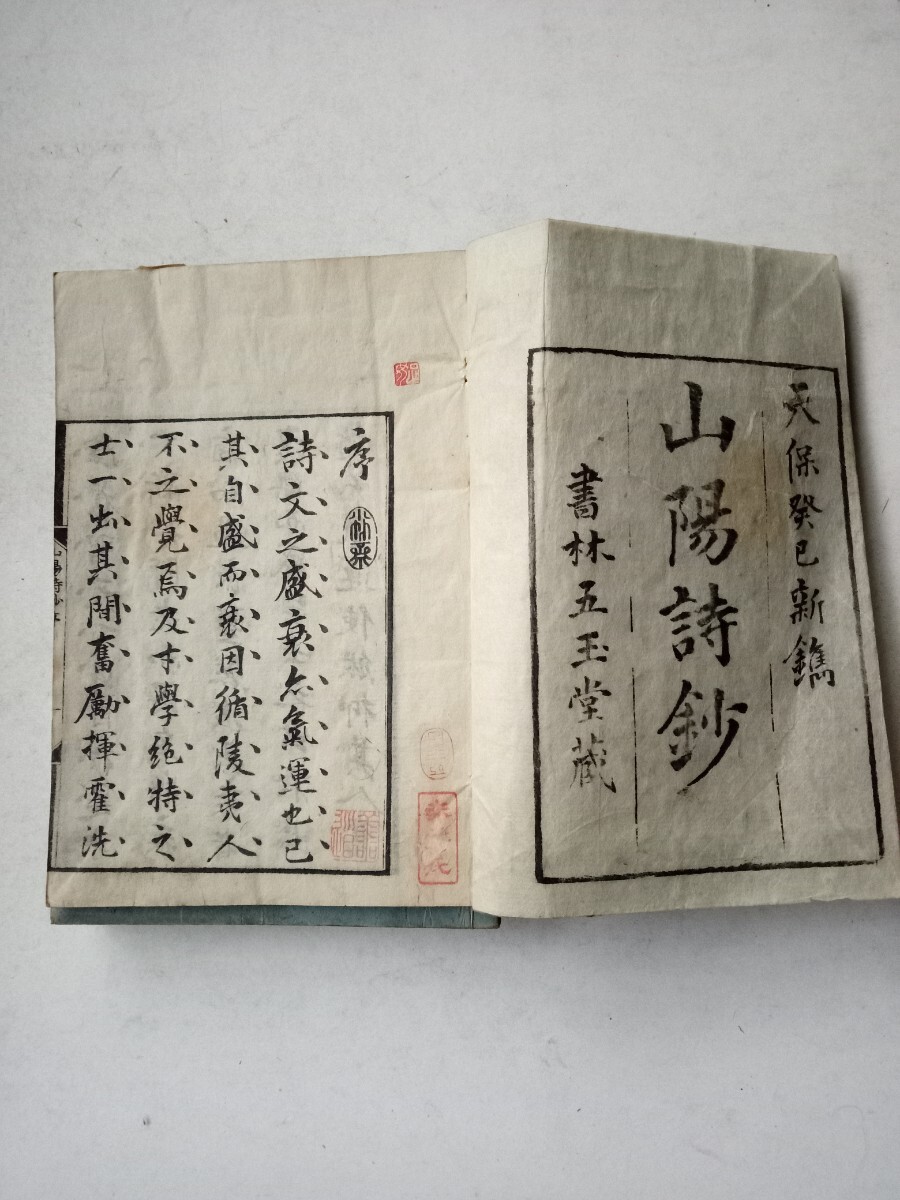 天保癸巳新鐫
山陽詩鈔
書林五玉堂蔵
序
詩文之盛衰亦氣運也已
其自盛而衰因循陵夷人
不之覺焉及才學絶特之
士一出其間奮勵揮霍洗
山陽詩鈔序